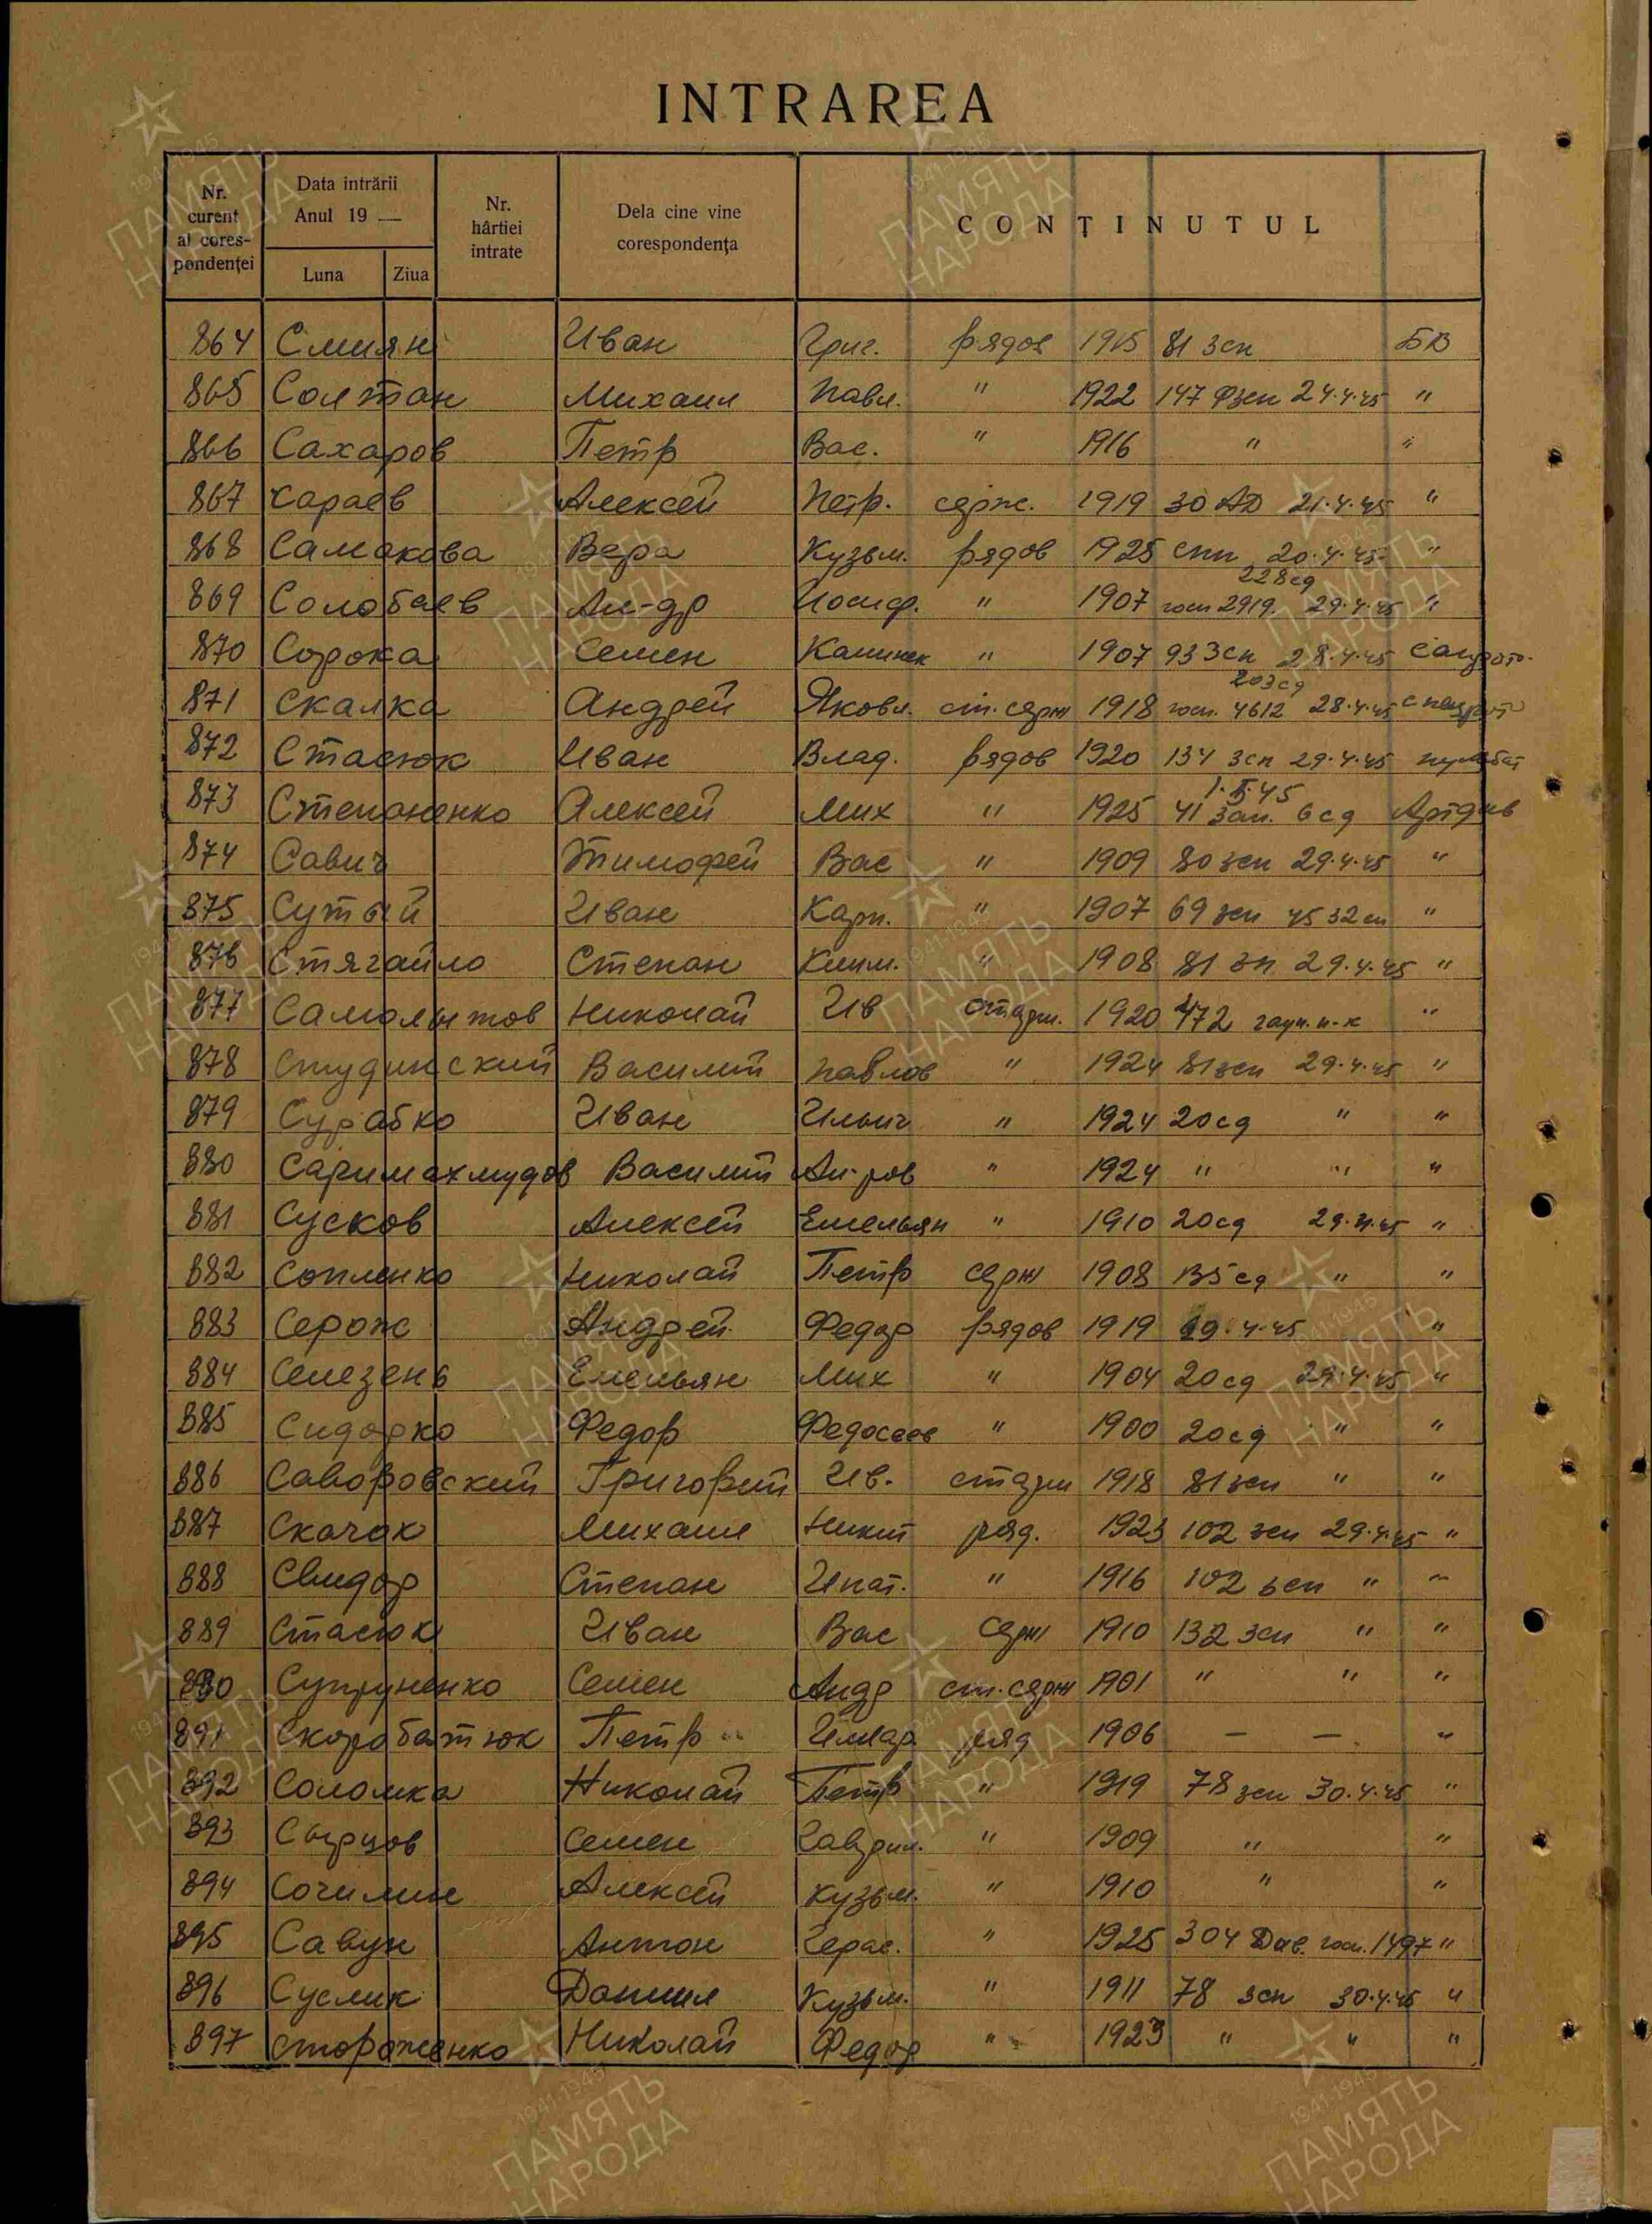 INTRAREA
Nr. curent al cores-pondenței
Data intrării Anul 19 —
Luna
Ziua
Nr. hârtiei intrate
Dela cine vine corespondența
CONȚINUTUL
864 Смиян Иван Григ. рядов 1915 81 зсп БВ
865 Солтан Михаил Павл. " 1922 147 Фзсп 24.4.45 "
866 Сахаров Петр Вас. " 1916 " "
867 Караев Алексей Петр. серж. 1919 30 АД 21.4.45 "
868 Самакова Вера Кузьм. рядов 1925 спп 20.4.45 "
869 Солобаев Ал-др Иосиф. " 1907 госп 2919. 228 сд 29.4.45 "
870 Сорока Семен " 1907 93 Зсп 28.4.45
871 Скалка Андрей Яковл. ст. серж 1918 госп. 4612 203 сд 28.4.45
872 Стасюк Иван Влад. рядов 1920 134 зсп 29.4.45 пульбат
873 Степаненко Алексей Мих " 1925 41 зап. 6 сд 1.5.45 Артдив
874 Савич Тимофей Вас " 1909 80 зсп 29.4.45 "
875 Сутый Иван Карп. " 1907 69 зсп 45 32 сп "
876 Стягайло Степан Клим. " 1908 81 зп 29.4.45 "
877 Самолытов Николай Ив 1920 472 гауп. п-к "
878 Студинский Василий Павлов " 1924 81 зсп 29.4.45 "
879 Сурабко Иван Ильич " 1924 20 сд " "
880 Саримахмудов Василий Ал-ров " 1924 " " "
881 Сусков Алексей Емельян " 1910 20 сд 29.4.45 "
882 Сопленко Николай Петр серж 1908 135 сд " "
883 Серож Андрей Федор рядов 1919 29.4.45 "
884 Селезень Емельян Мих " 1904 20 сд 29.4.45 "
885 Сидорко Федор Федосеев " 1900 20 сд " "
886 Саворовский Григорий Ив. 1918 81 зсп " "
887 Скачок Михаил Никит ряд. 1923 102 зсп 29.4.45 "
888 Свидор Степан Игнат. " 1916 102 зсп " "
889 Стасюк Иван Вас серж 1910 132 зсп " "
890 Супруненко Семен Андр ст. серж 1901 " " "
891 Скоробатюк Петр ряд 1906 — — "
892 Соломка Николай Петр " 1919 78 зсп 30.4.45 "
893 Сырцов Семен Гаврил. " 1909 " "
894 Сочилин Алексей Кузьм. " 1910 " "
895 Савун Антон Герас. " 1925 304 Див. госп. 1497 "
896 Суслик Даниил Кузьм. " 1911 78 зсп 30.4.45 "
897 Стороженко Николай Федор " 1923 " " "
1941-1945
ПАМЯТЬ НАРОДА